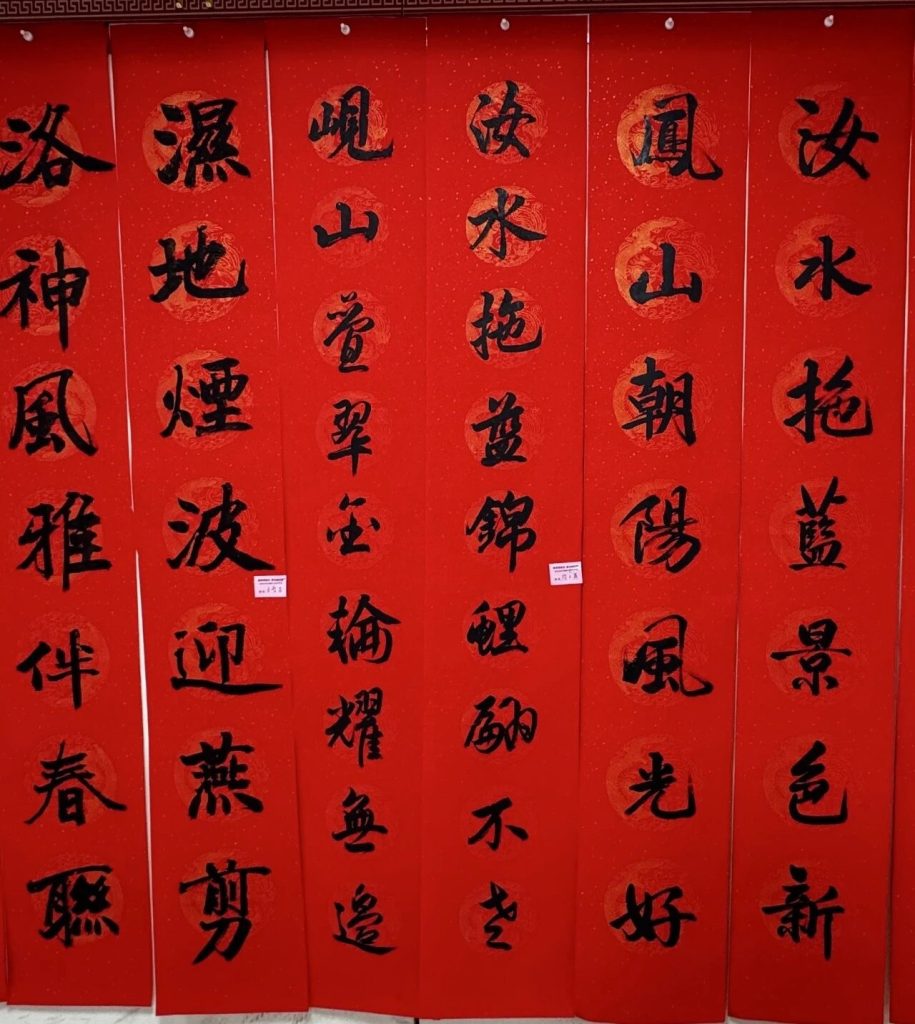 汝水拖藍景色新
鳳山朝陽風光好
汝水拖藍錦鯉翩不老
峴山叠翠金輪耀無邊
濕地煙波迎燕剪
洛神風雅伴春聯